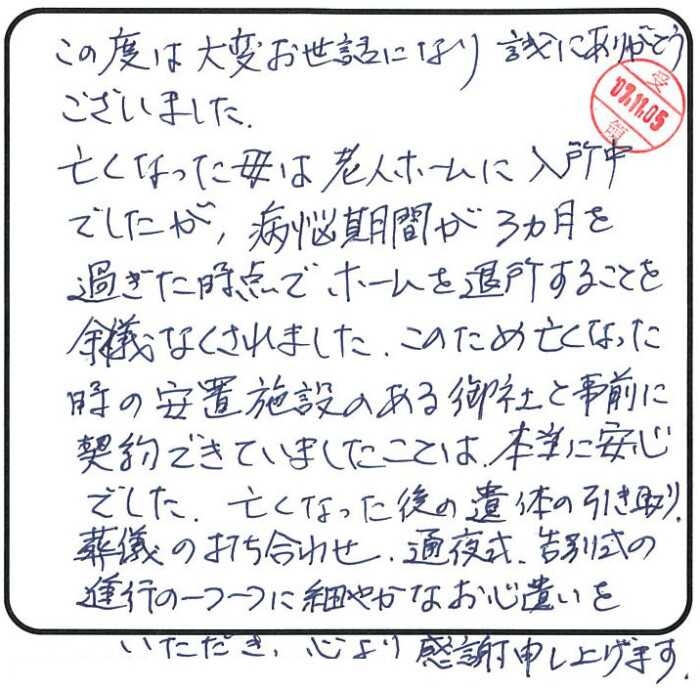 この度は大変お世話になり誠にありがとう
ございました.
受
'07.11.05
領
亡くなった母は老人ホームに入所中
でしたが, 病悩期間が3カ月を
過ぎた時点でホームを退所することを
余儀なくされました. このため亡くなった
時の安置施設のある御社と事前に
契約できていましたことは、本当に安心
でした. 亡くなった後の遺体の引き取り.
葬儀の打ち合わせ、通夜式、告別式の
運行の一つ一つに細やかなお心遣いを
いただき、心より感謝申し上げます.